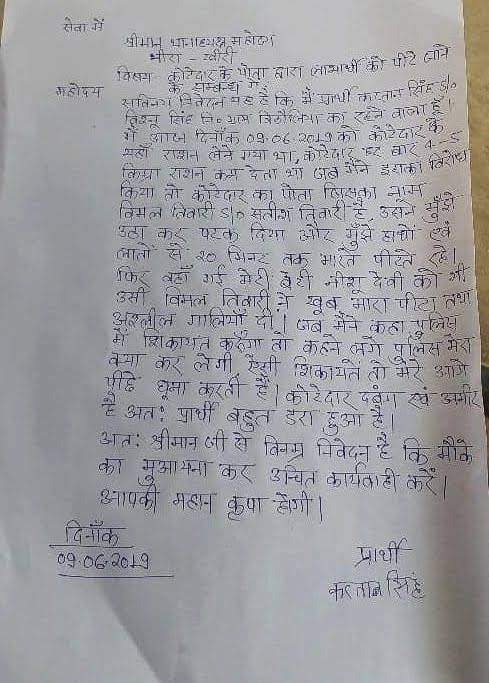 सेवा में
श्रीमान थानाध्यक्ष महोदय
भीरा - खीरी
विषय- कोटेदार के पोता द्वारा लाभार्थी को पीटे जाने
के सम्बन्ध में
महोदय
सविनय निवेदन यह है कि मैं प्रार्थी करतान सिंह S/o
विश्नू सिंह नि० ग्राम का रहने वाला हूँ।
मैं आज दिनाँक 09.06.2019 को कोटेदार के
यहाँ राशन लेने गया था, कोटेदार हर बार 4-5
किग्रा राशन कम देता था जब मैंने इसका विरोध
किया तो कोटेदार का पोता जिसका नाम
विमल तिवारी S/o सतीश तिवारी है, उसने मुझे
उठा कर पटक दिया और मुँझे हाथों एवं
लातों से 20 मिनट तक मारते पीटते रहे।
फिर वहाँ गई मेरी बेटी नीशू देवी को भी
उसी विमल तिवारी ने खूब मारा पीटा तथा
अश्लील गालियाँ दी। जब मैंने कहा पुलिस
में शिकायत करूँगा तो कहने लगे पुलिस मेरा
क्या कर लेगी, ऐसी शिकायतें तो मेरे आगे
पीछे घूमा करती हैं। कोटेदार दबंग एवं अमीर
है अतः प्रार्थी बहुत डरा हुआ है।
अतः श्रीमान जी से विनम्र निवेदन है कि मौके
का मुआयना कर उचित कार्यवाही करें।
आपकी महान कृपा होगी।
दिनाँक
09.06.2019
प्रार्थी
करतान सिंह